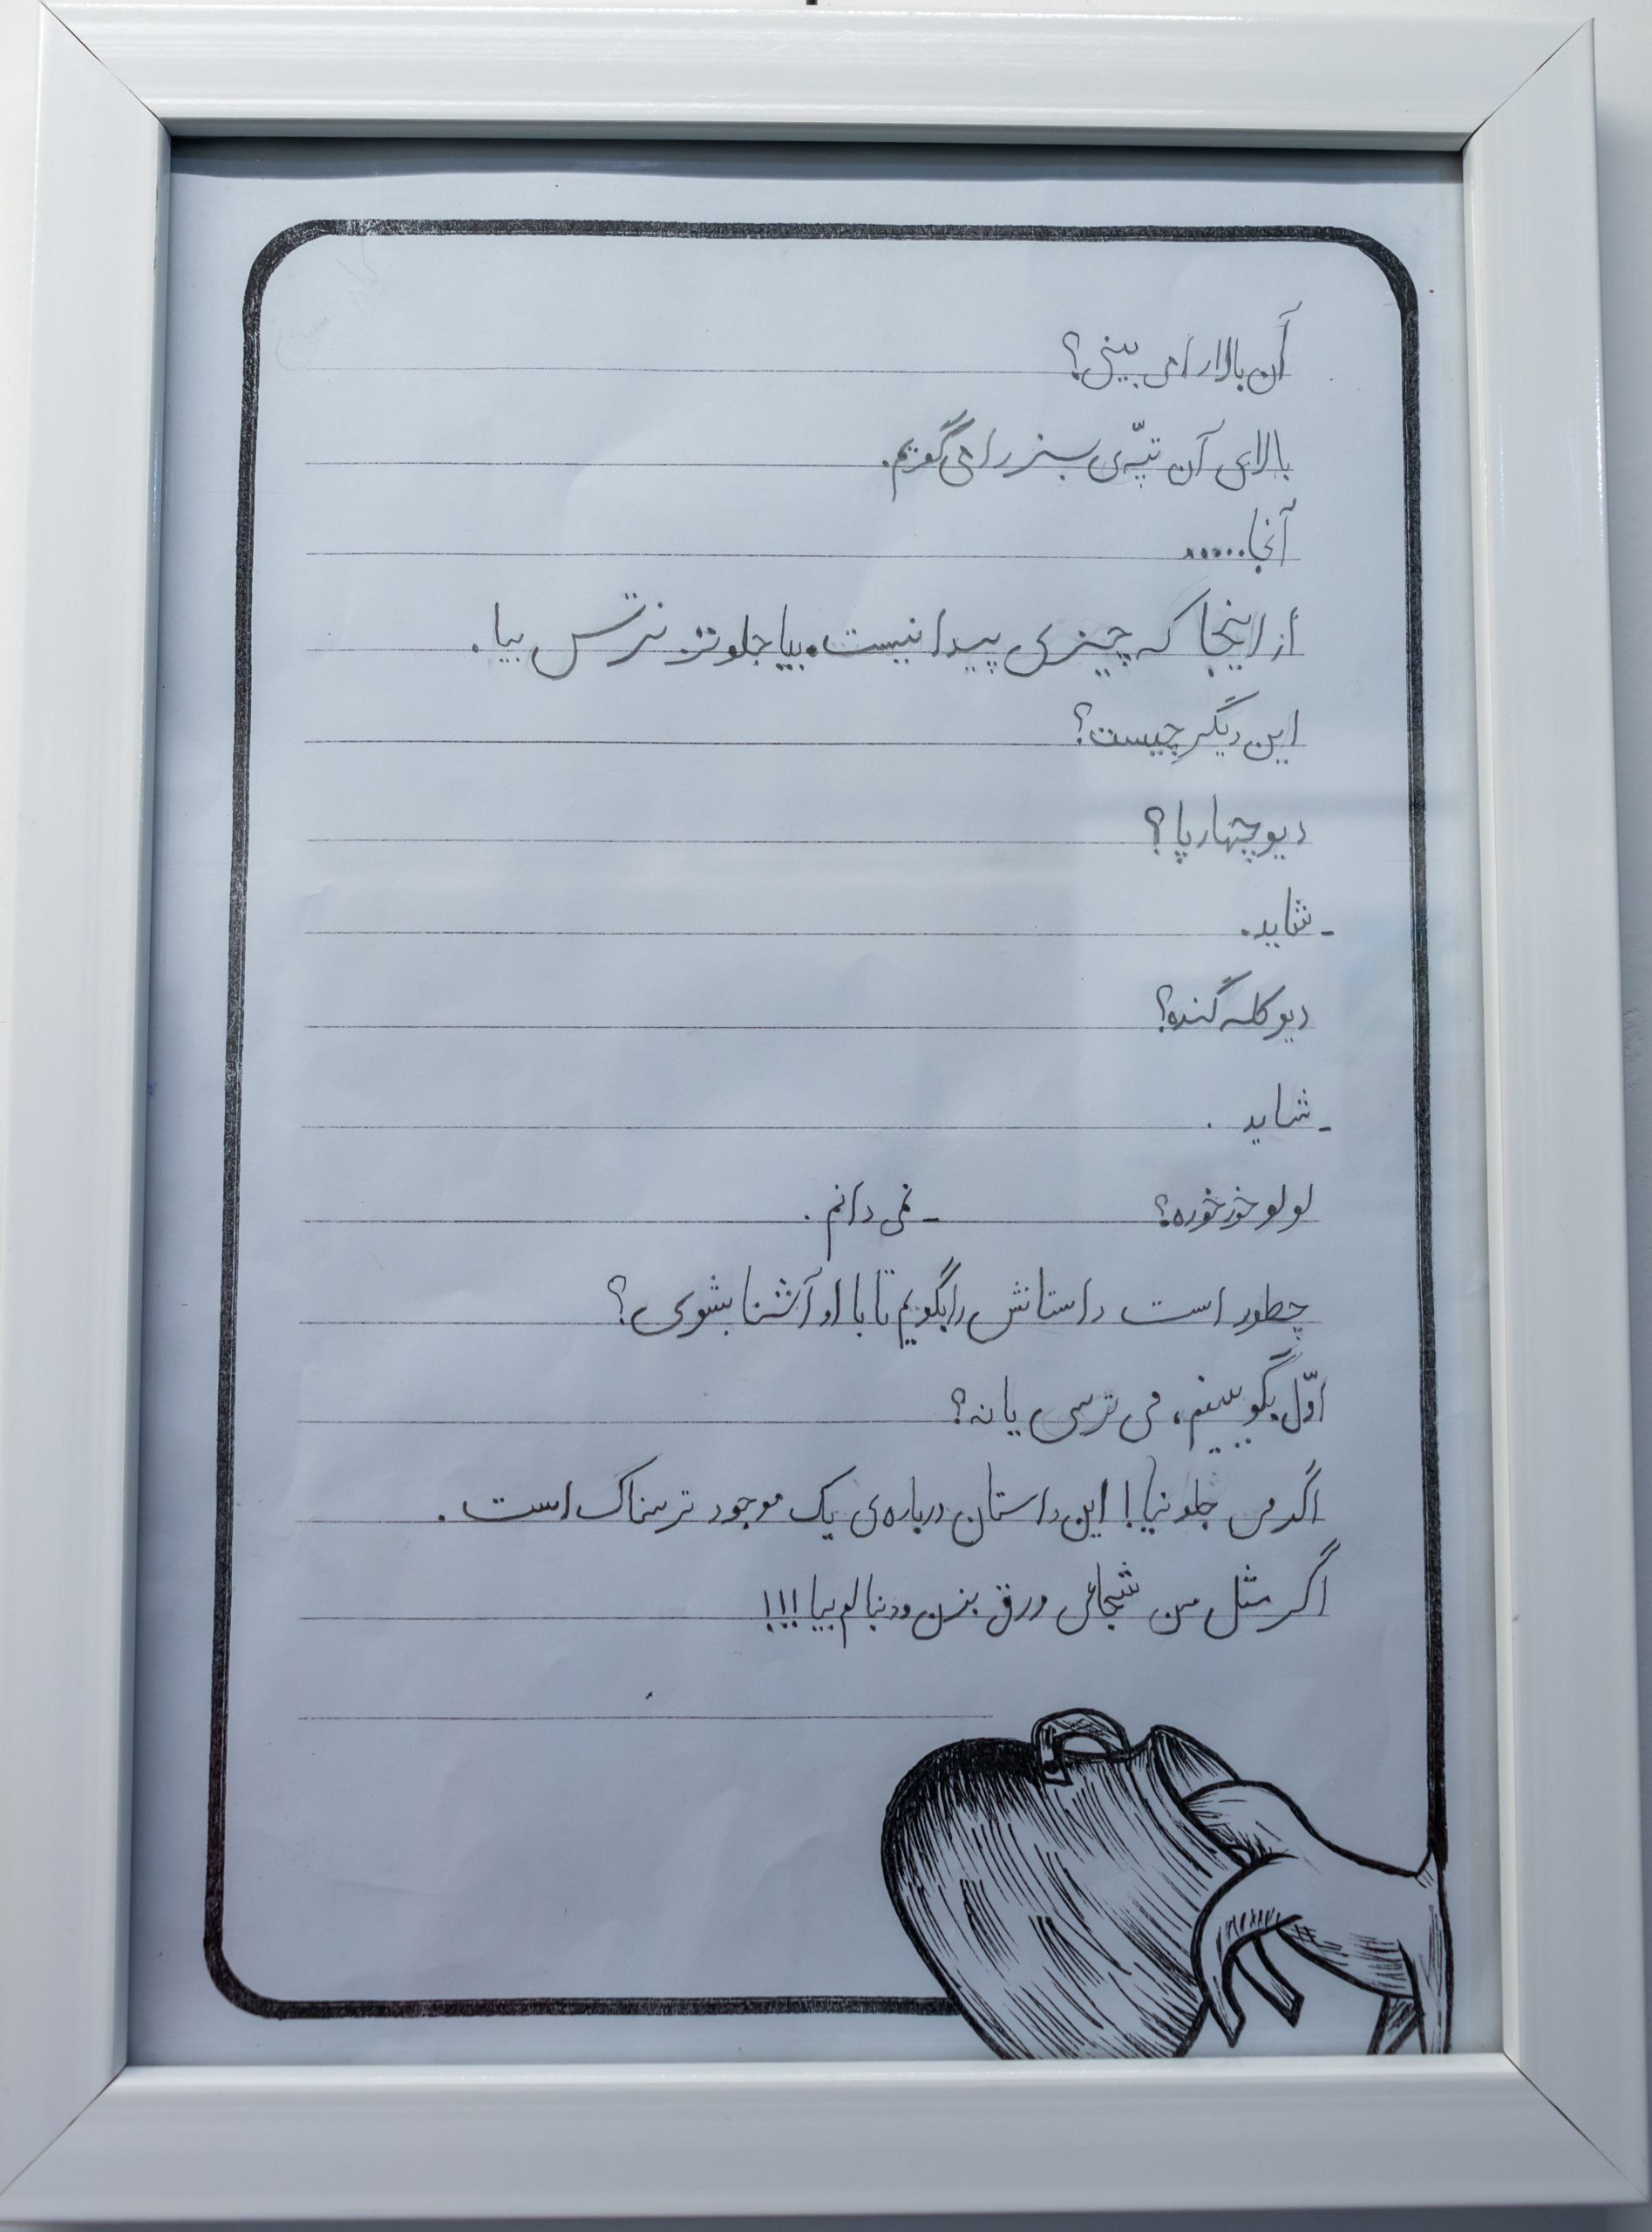 آن بالا را می بینی؟
بالای آن تپّه‌ی سبز را می گویم.
آنجا.....
از اینجا که چیزی پیدا نیست. بیا جلوتر. نترس بیا.
این دیگر چیست؟
دیو چهارپا؟
ـ شاید.
دیو کله گنده؟
ـ شاید.
لولو خورخوره؟ ـ نمی دانم.
چطور است داستانش را بگویم تا با او آشنا بشوی؟
اوّل بگو ببینم، می ترسی یا نه؟
جلو نیا! این داستان درباره‌ی یک موجود ترسناک است.
اگر مثل من شجاعی ورق بزن و دنبالم بیا!!!